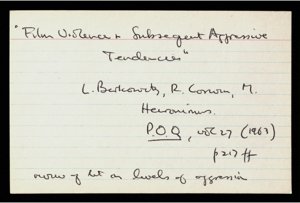 "Film Violence & Subsequent Aggressive
Tendencies"
L. Berkowitz, R. Corwin, M.
Heironimus.
P.O.Q, vol 27 (1963)
p 217 ff
on levels of aggression